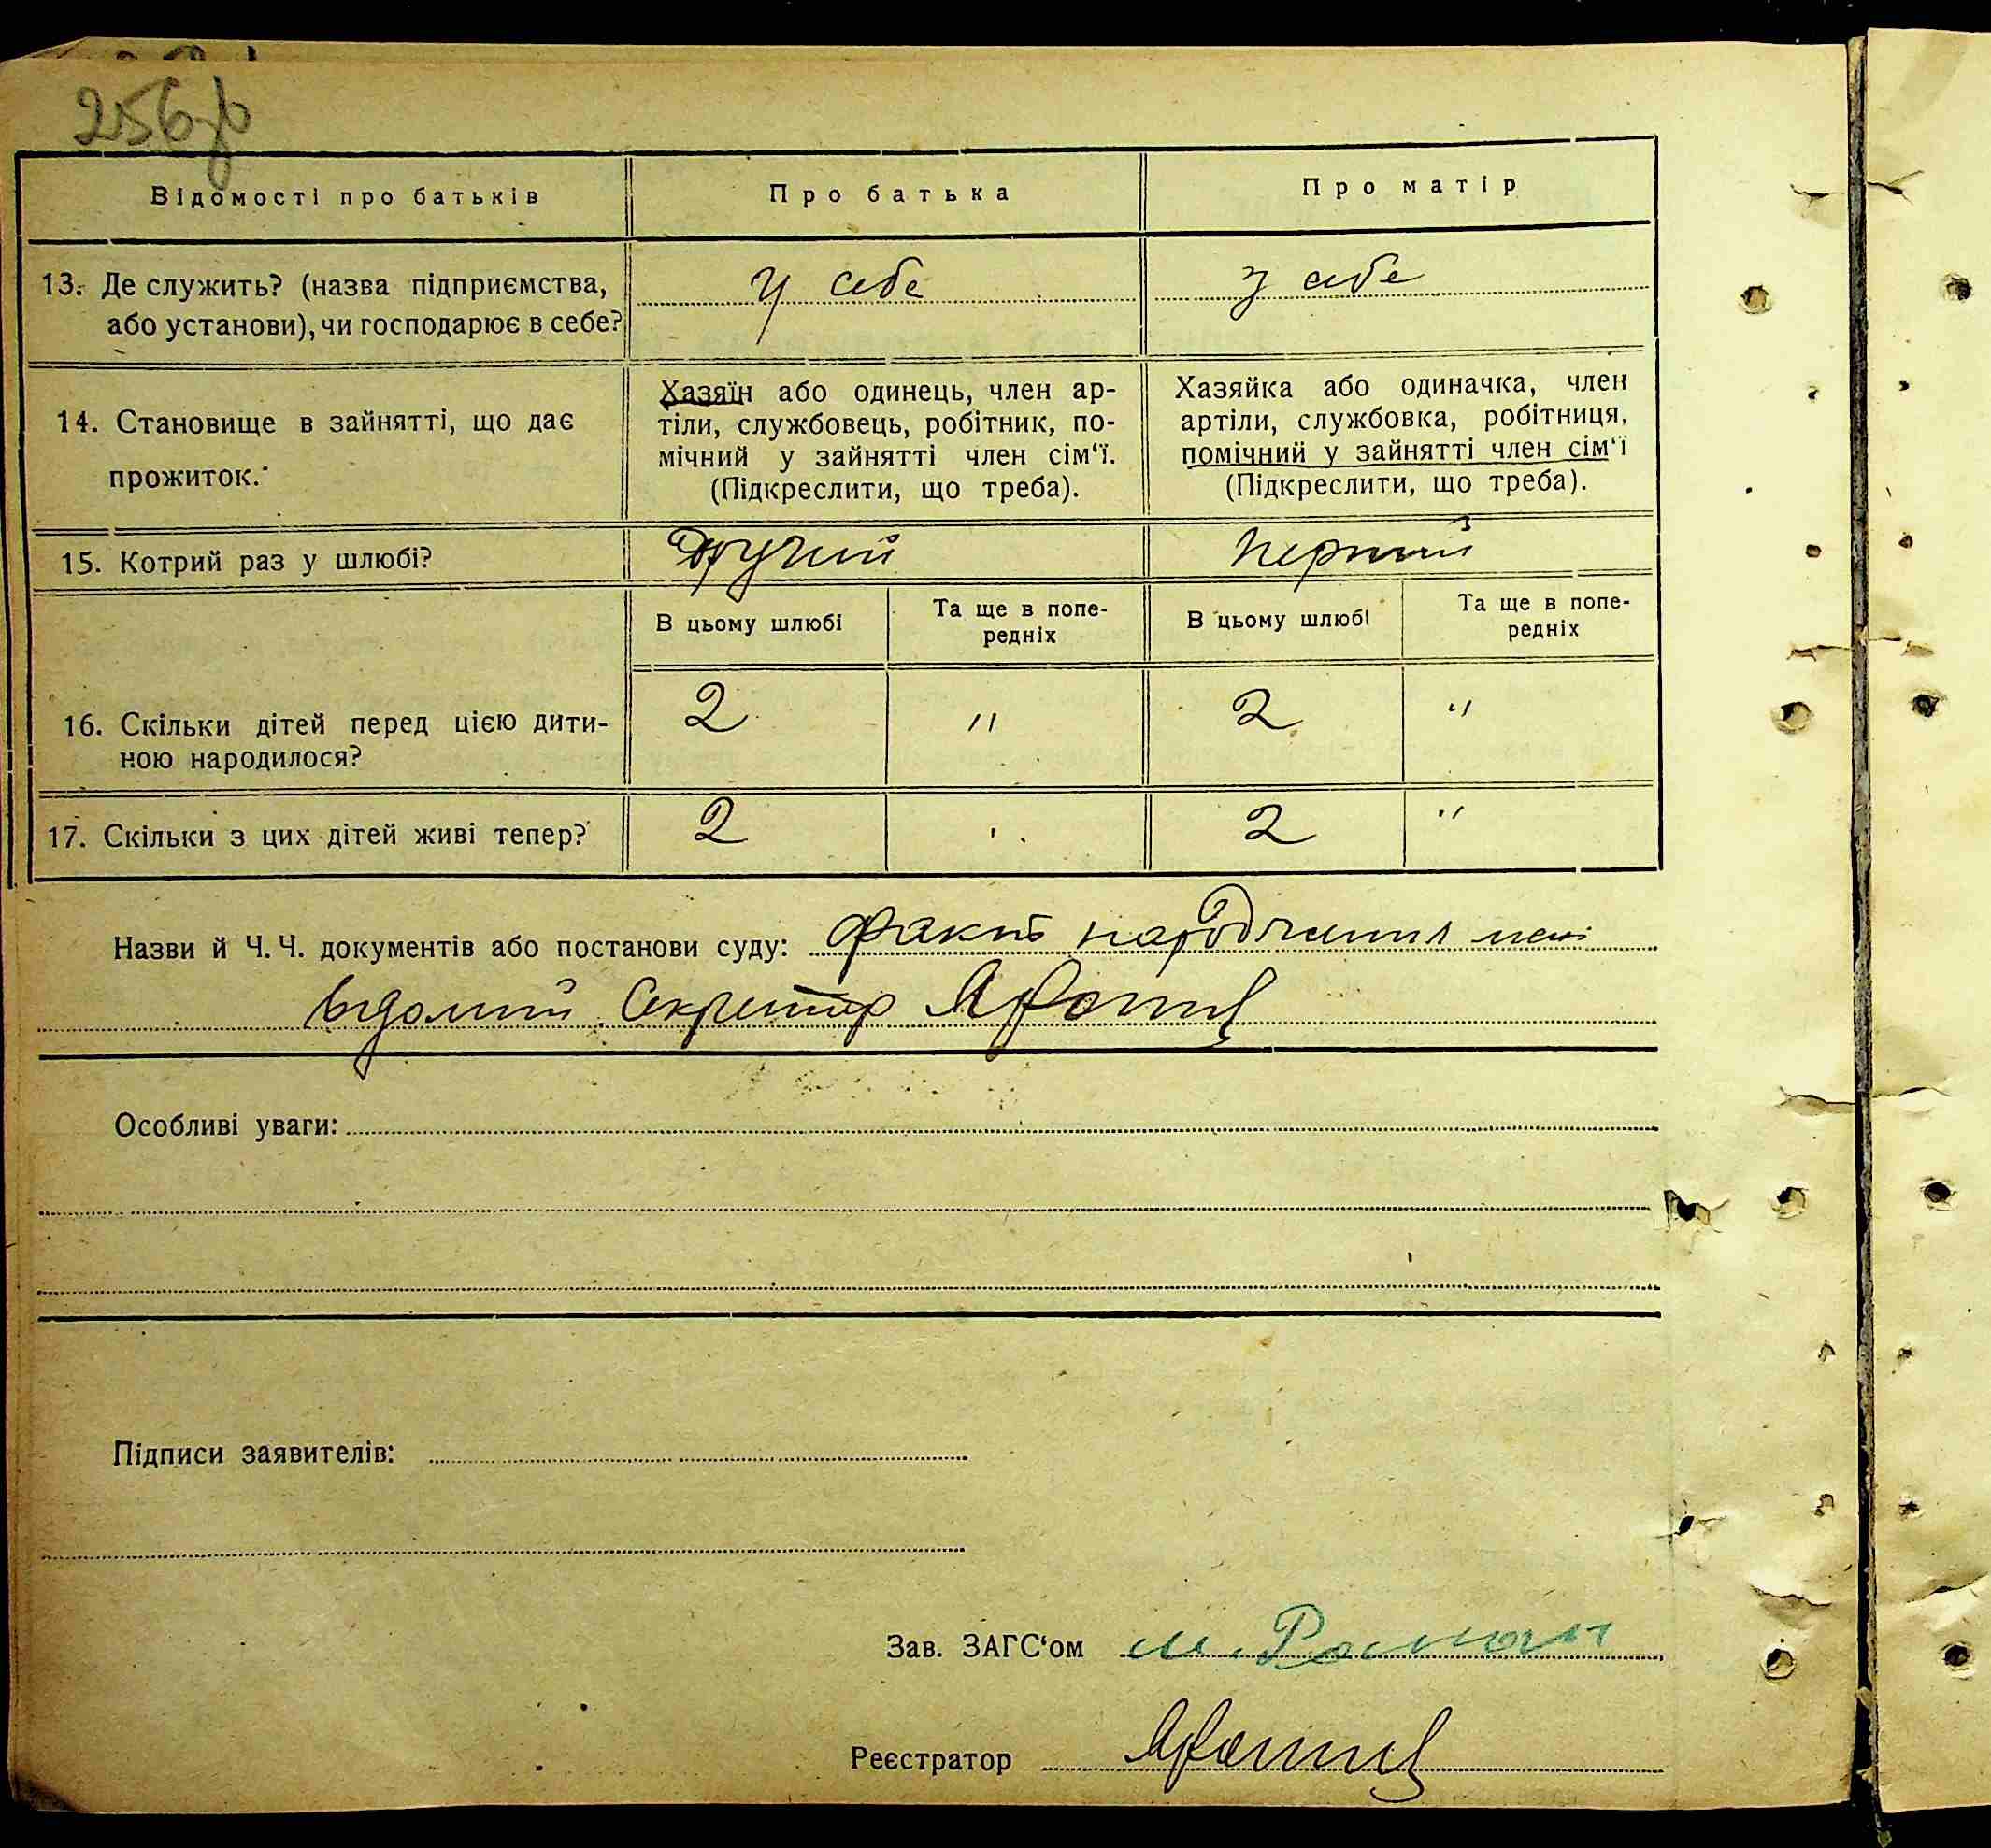 256
Відомості про батьків
Про батька
Про матір
13. Де служить? (назва підприємства,
або установи), чи господарює в себе?
у себе
у себе
14. Становище в зайнятті, що дає
прожиток.
Хазяїн або одинець, член ар-
тіли, службовець, робітник, по-
мічний у зайнятті член сім‘ї.
(Підкреслити, що треба).
Хазяйка або одиначка, член
артіли, службовка, робітниця,
помічний у зайнятті член сім‘ї
(Підкреслити, що треба).
15. Котрий раз у шлюбі?
другий
перший
В цьому шлюбі
Та ще в попе-
редніх
В цьому шлюбі
Та ще в попе-
редніх
16. Скільки дітей перед цією дити-
ною народилося?
2
"
2
"
17. Скільки з цих дітей живі тепер?
2
"
2
"
Назви й Ч. Ч. документів або постанови суду: факт народження мені
відомий Секретар
Особливі уваги:
Підписи заявителів:
Зав. ЗАГС‘ом
Реєстратор